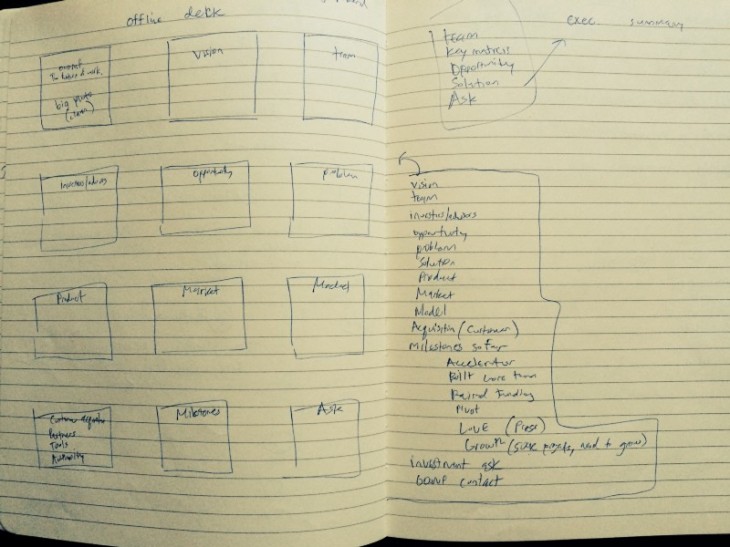 offline deck
The future of work.
big
vision
team
Investors/advisors
Opportunity
problem
Product
Market
Model
Customer acquisition
Partners
Tools
Milestones
Ask
exec. summary
team
key metrics
Opportunity
Solution
Ask
vision
team
investors/advisors
opportunity
problem
Solution
Product
Market
Model
Acquisition (Customer)
Milestones so far
Accelerator
Built core team
Raised Funding
Pivot
LOVE (Press)
Growth (
investment ask
contact